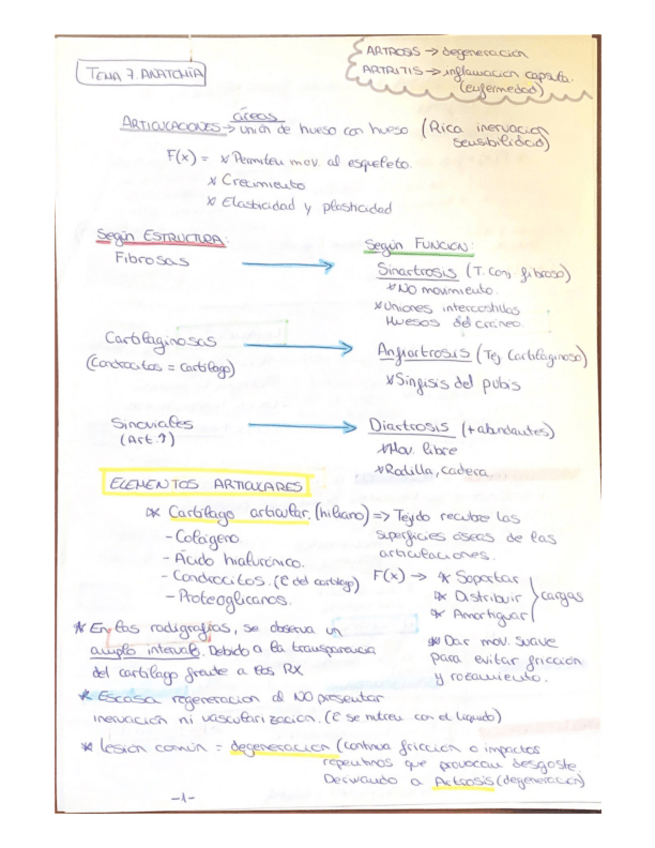 TEMA 7. ANATOMÍA
ARTROSIS → degeneración
ARTRITIS → inflamación capsula.
(enfermedad)
áreas
ARTICULACIONES → unión de hueso con hueso (Rica inervación
sensibilidad)
F(x) = * Permiten mov. al esqueleto.
* Crecimiento
* Elasticidad y plasticidad
Según ESTRUCTURA:
Según FUNCIÓN:
Fibrosas
Sinartrosis (T. Conj fibroso)
* NO movimiento.
* Uniones intercostillas
Huesos del cráneo.
Cartilaginosas
(Condrocitos = Cartílago)
Anfiartrosis (Tej Cartilaginoso)
* Sínfisis del pubis
Sinoviales
(Art.?)
Diartrosis (+abundantes)
* Mov. libre
* Rodilla, cadera.
ELEMENTOS ARTICULARES
* Cartílago articular. (hialino) => Tejido recubre las
superficies óseas de las
articulaciones.
- Colágeno.
- Ácido hialurónico.
- Condrocitos. (C del cartílago)
- Proteoglicanos.
F(x) → * Soportar
* Distribuir
* Amortiguar
cargas
* Dar mov. suave
para evitar fricción
y rozamiento.
* En las radiografías, se observa un
amplio intervalo. Debido a la transparencia
del cartílago frente a los RX
* Escasa regeneración al NO presentar
inervación ni vascularización. (C se nutren con el líquido)
* Lesión común = degeneración (continua fricción o impactos
repentinos que provocan desgaste.
Derivando a Artrosis (degeneración)
-1-